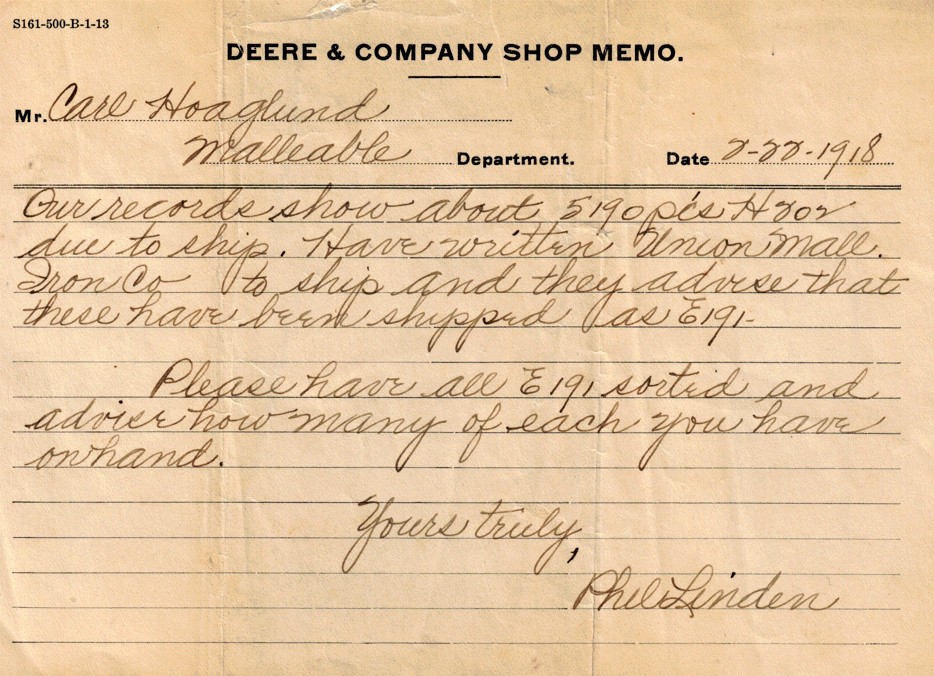 S161-500-B-1-13
DEERE & COMPANY SHOP MEMO.
Mr. Carl Hoaglund
Malleable Department. Date 2-22-1918
Our records show about 5190 pcs H202
due to ship. Have written Union Mall.
Iron Co to ship and they advise that
these have been shipped as E191-
Please have all E191 sorted and
advise how many of each you have
on hand.
Yours truly,
Phil Linden